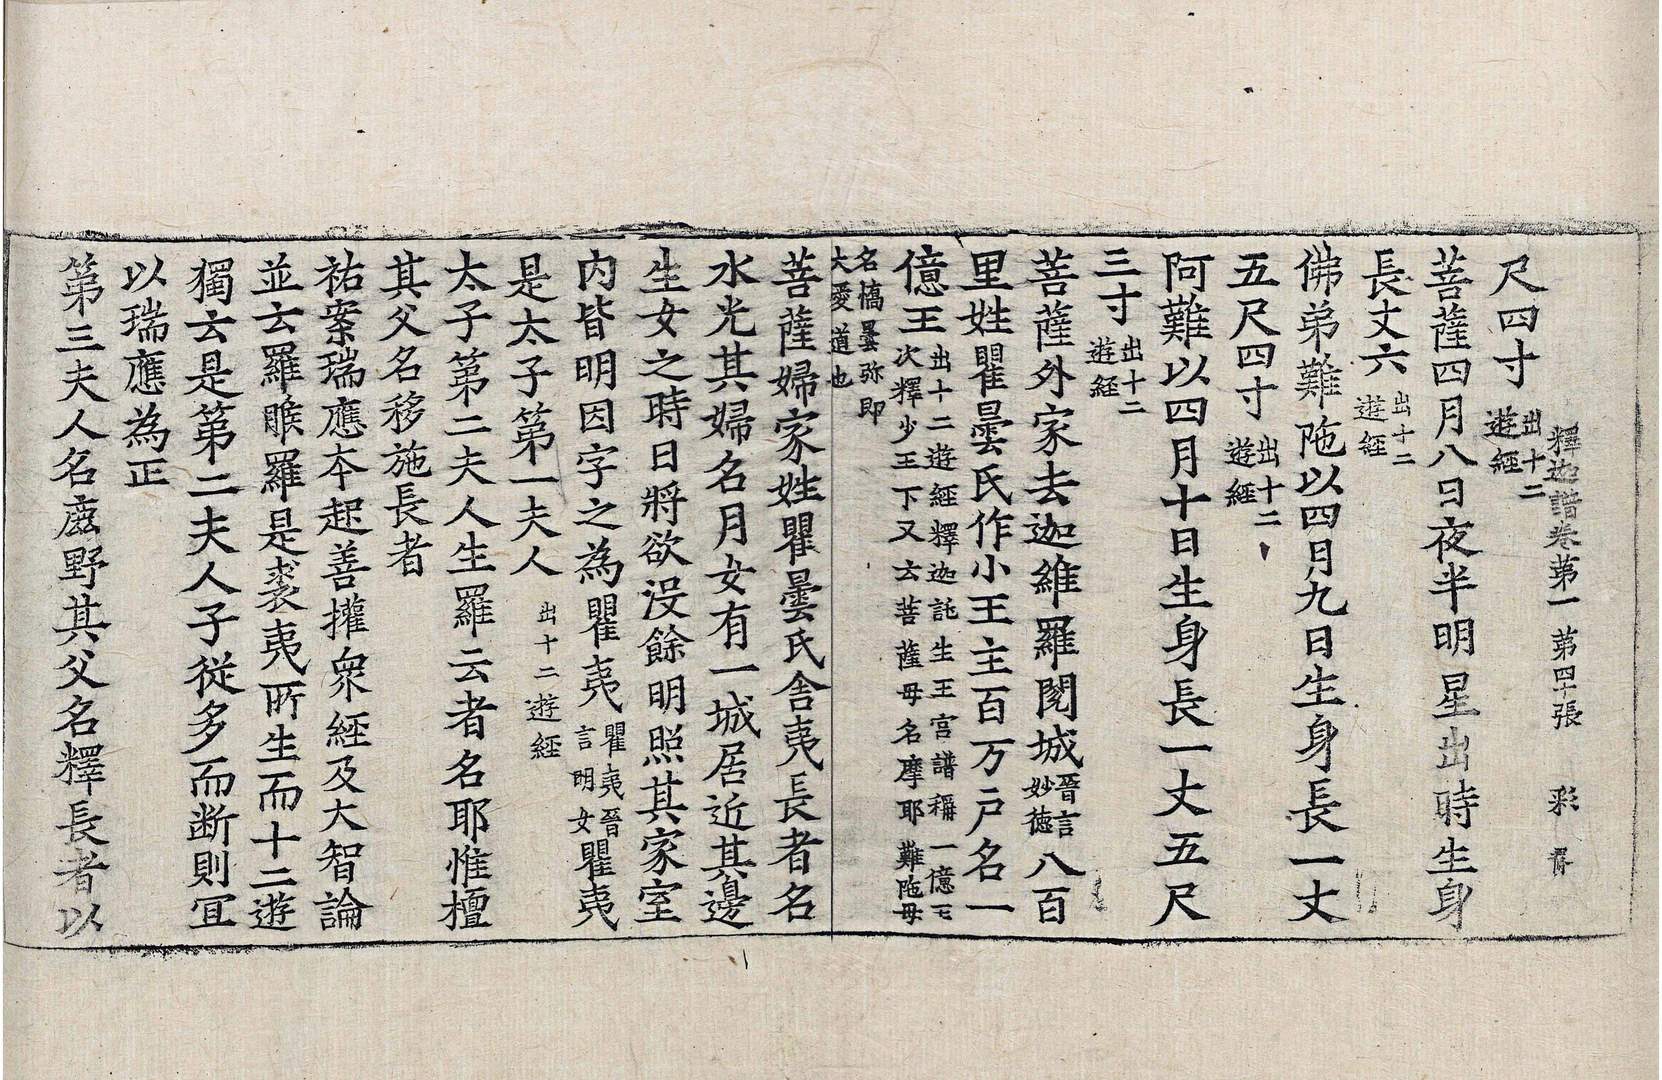 釋迦譜卷第一　第四十張　彩
尺四寸出十二遊經
菩薩四月八日夜半明星出時生身
長丈六出十二遊經
佛弟難陁以四月九日生身長一丈
五尺四寸出十二遊經
阿難以四月十日生身長一丈五尺
三寸出十二遊經
菩薩外家去迦維羅閱城晉言妙德八百
里姓瞿曇氏作小王主百万户名一
億王出十二遊經釋迦託生王宮譜稱一億王次釋少王下又云菩薩母名摩耶難陁母
名憍曇弥即大愛道也
菩薩婦家姓瞿曇氏舍夷長者名
水光其婦名月女有一城居近其邊
生女之時日將欲没餘明照其家室
内皆明因字之為瞿夷瞿夷晉言明女瞿夷
是太子第一夫人出十二遊經
太子第二夫人生羅云者名耶惟檀
其父名移施長者
祐案瑞應本起善權衆經及大智論
並云羅睺羅是裘夷所生而十二遊
獨云是第二夫人子從多而断則宜
以瑞應為正
第三夫人名鹿野其父名釋長者以